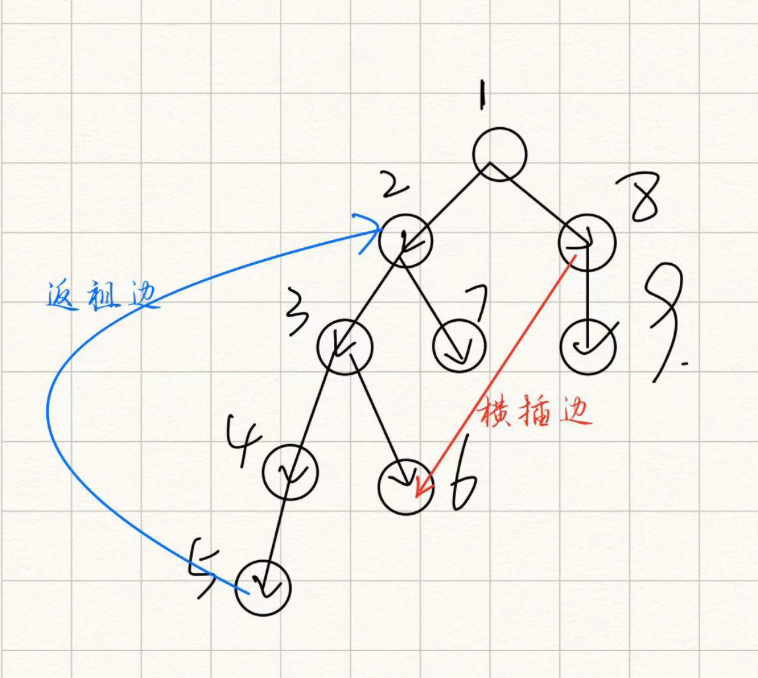 1
2
8
返祖边
3
7
9.
横插边
4
6
5